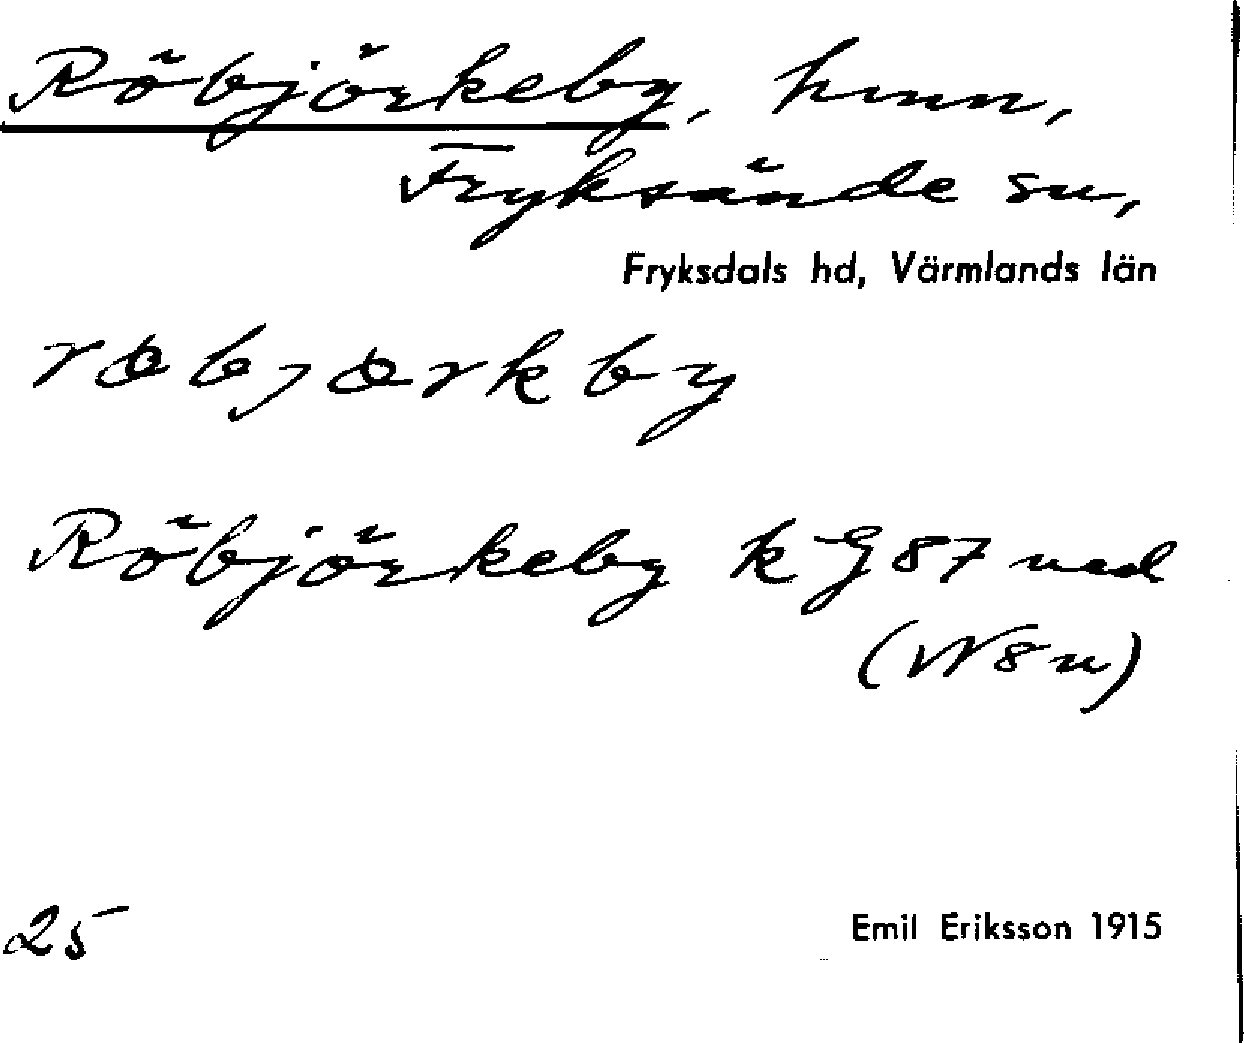 Röbjörkeby, hmn,
Fryksände sn,
Fryksdals hd, Värmlands län
röbjörkby
Röbjörkeby k G87 ned
(W8n)
25
Emil Eriksson 1915